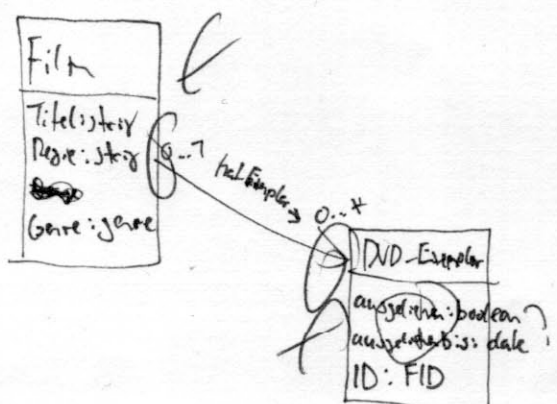 Film
Titel:string
Regie:string
Genre:genre
0..1
hatExemplar
0..*
DVD-Exemplar
ausgeliehen:boolean
ausgeliehenbis:date
ID: FID